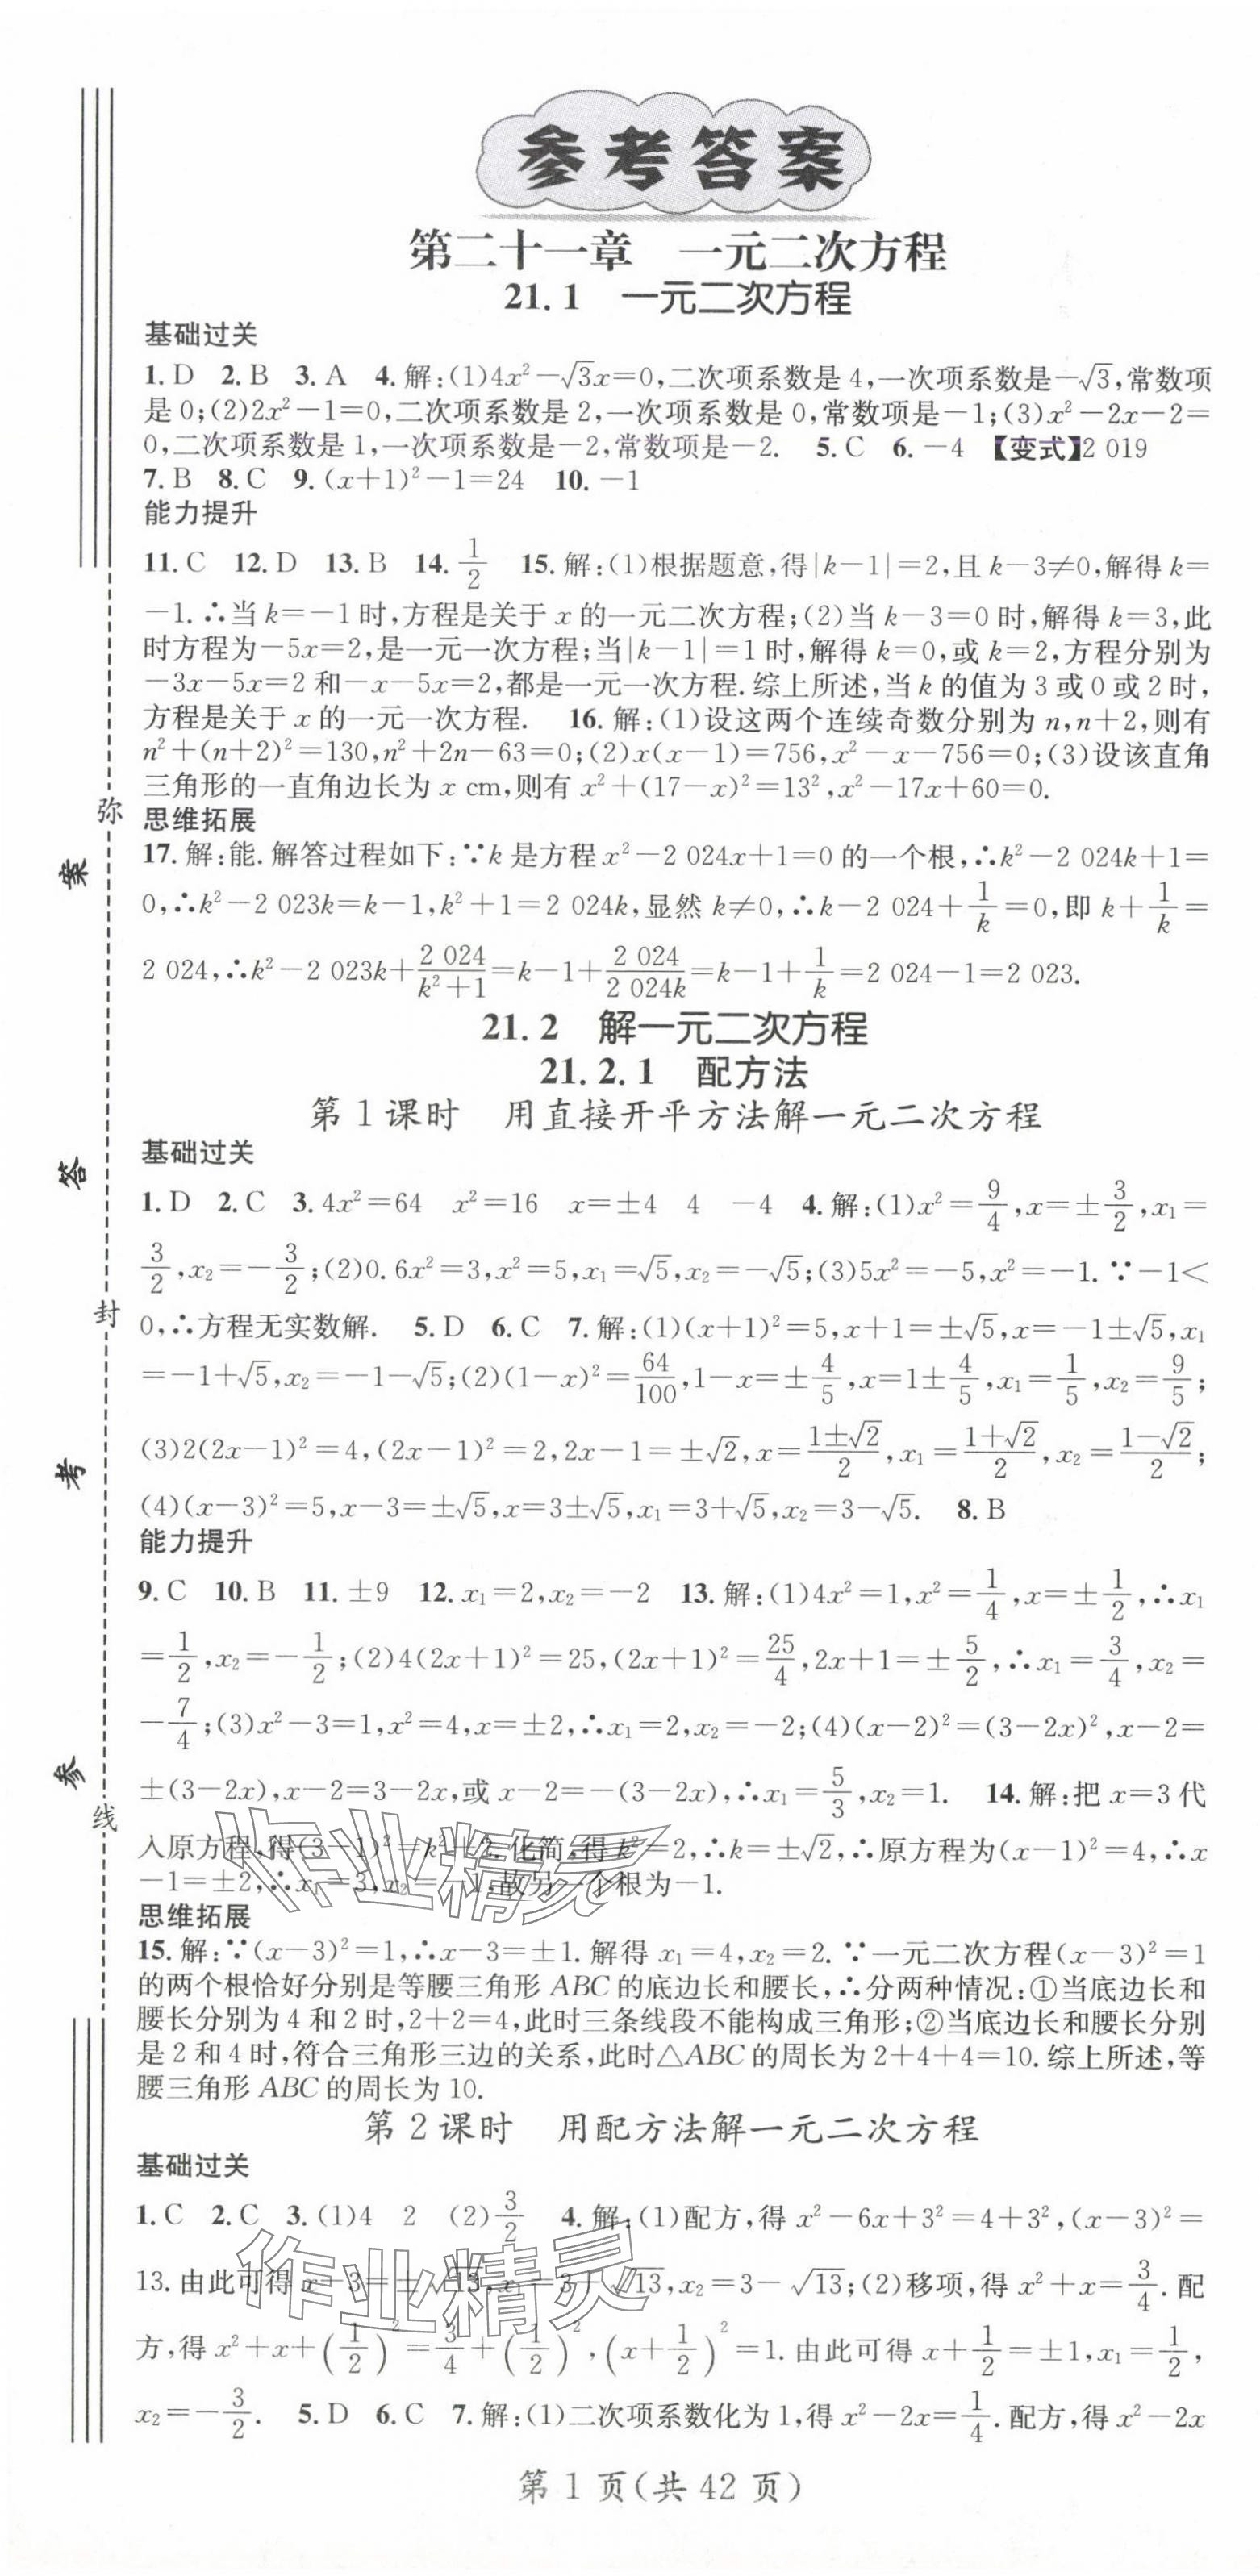 参考答案
第二十一章　一元二次方程
21.1　一元二次方程
基础过关
1.D　2.B　3.A　4.解:(1)4x²－√3x＝0,二次项系数是4,一次项系数是－√3,常数项
是0;(2)2x²－1＝0,二次项系数是2,一次项系数是0,常数项是－1;(3)x²－2x－2＝
0,二次项系数是1,一次项系数是－2,常数项是－2.　5.C　6.－4　【变式】2 019
7.B　8.C　9.(x＋1)²－1＝24　10.－1
能力提升
11.C　12.D　13.B　14.1/2　15.解:(1)根据题意,得|k－1|＝2,且k－3≠0,解得k＝
－1.∴当k＝－1时,方程是关于x的一元二次方程;(2)当k－3＝0时,解得k＝3,此
时方程为－5x＝2,是一元一次方程;当|k－1|＝1时,解得k＝0,或k＝2,方程分别为
－3x－5x＝2和－x－5x＝2,都是一元一次方程.综上所述,当k的值为3或0或2时,
方程是关于x的一元一次方程.　16.解:(1)设这两个连续奇数分别为n,n＋2,则有
n²＋(n＋2)²＝130,n²＋2n－63＝0;(2)x(x－1)＝756,x²－x－756＝0;(3)设该直角
三角形的一直角边长为x cm,则有x²＋(17－x)²＝13²,x²－17x＋60＝0.
思维拓展
17.解:能.解答过程如下:∵k是方程x²－2 024x＋1＝0的一个根,∴k²－2 024k＋1＝
0,∴k²－2 023k＝k－1,k²＋1＝2 024k,显然k≠0,∴k－2 024＋1/k＝0,即k＋1/k＝
2 024,∴k²－2 023k＋2 024/(k²＋1)＝k－1＋2 024/(2 024k)＝k－1＋1/k＝2 024－1＝2 023.
21.2　解一元二次方程
21.2.1　配方法
第1课时　用直接开平方法解一元二次方程
基础过关
1.D　2.C　3.4x²＝64　x²＝16　x＝±4　4　－4　4.解:(1)x²＝9/4,x＝±3/2,x₁＝
3/2,x₂＝－3/2;(2)0.6x²＝3,x²＝5,x₁＝√5,x₂＝－√5;(3)5x²＝－5,x²＝－1.∵－1＜
0,∴方程无实数解.　5.D　6.C　7.解:(1)(x＋1)²＝5,x＋1＝±√5,x＝－1±√5,x₁
＝－1＋√5,x₂＝－1－√5;(2)(1－x)²＝64/100,1－x＝±4/5,x＝1±4/5,x₁＝1/5,x₂＝9/5;
(3)2(2x－1)²＝4,(2x－1)²＝2,2x－1＝±√2,x＝(1±√2)/2,x₁＝(1＋√2)/2,x₂＝(1－√2)/2;
(4)(x－3)²＝5,x－3＝±√5,x＝3±√5,x₁＝3＋√5,x₂＝3－√5.　8.B
能力提升
9.C　10.B　11.±9　12.x₁＝2,x₂＝－2　13.解:(1)4x²＝1,x²＝1/4,x＝±1/2,∴x₁
＝1/2,x₂＝－1/2;(2)4(2x＋1)²＝25,(2x＋1)²＝25/4,2x＋1＝±5/2,∴x₁＝3/4,x₂＝
－7/4;(3)x²－3＝1,x²＝4,x＝±2,∴x₁＝2,x₂＝－2;(4)(x－2)²＝(3－2x)²,x－2＝
±(3－2x),x－2＝3－2x,或x－2＝－(3－2x),∴x₁＝5/3,x₂＝1.　14.解:把x＝3代
入原方程,得(3－1)²＝k²＋2.化简,得k²＝2,∴k＝±√2,∴原方程为(x－1)²＝4,∴x
－1＝±2,∴x₁＝3,x₂＝－1,故另一个根为－1.
思维拓展
15.解:∵(x－3)²＝1,∴x－3＝±1.解得x₁＝4,x₂＝2.∵一元二次方程(x－3)²＝1
的两个根恰好分别是等腰三角形ABC的底边长和腰长,∴分两种情况:①当底边长和
腰长分别为4和2时,2＋2＝4,此时三条线段不能构成三角形;②当底边长和腰长分别
是2和4时,符合三角形三边的关系,此时△ABC的周长为2＋4＋4＝10.综上所述,等
腰三角形ABC的周长为10.
第2课时　用配方法解一元二次方程
基础过关
1.C　2.C　3.(1)4　2　(2)3/2　4.解:(1)配方,得x²－6x＋3²＝4＋3²,(x－3)²＝
13.由此可得x－3＝±√13,x₁＝3＋√13,x₂＝3－√13;(2)移项,得x²＋x＝3/4.配
方,得x²＋x＋(1/2)²＝3/4＋(1/2)²,(x＋1/2)²＝1.由此可得x＋1/2＝±1,x₁＝1/2,
x₂＝－3/2.　5.D　6.C　7.解:(1)二次项系数化为1,得x²－2x＝1/4.配方,得x²－2x
第1页(共42页)
弥
封
线
参考答案
作业精灵
作业精灵